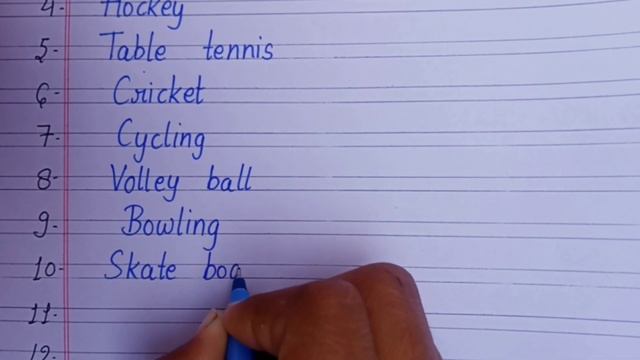 4- Hockey
5- Table tennis
6- Cricket
7- Cycling
8- Volley ball
9- Bowling
10- Skate boa
11-
12-